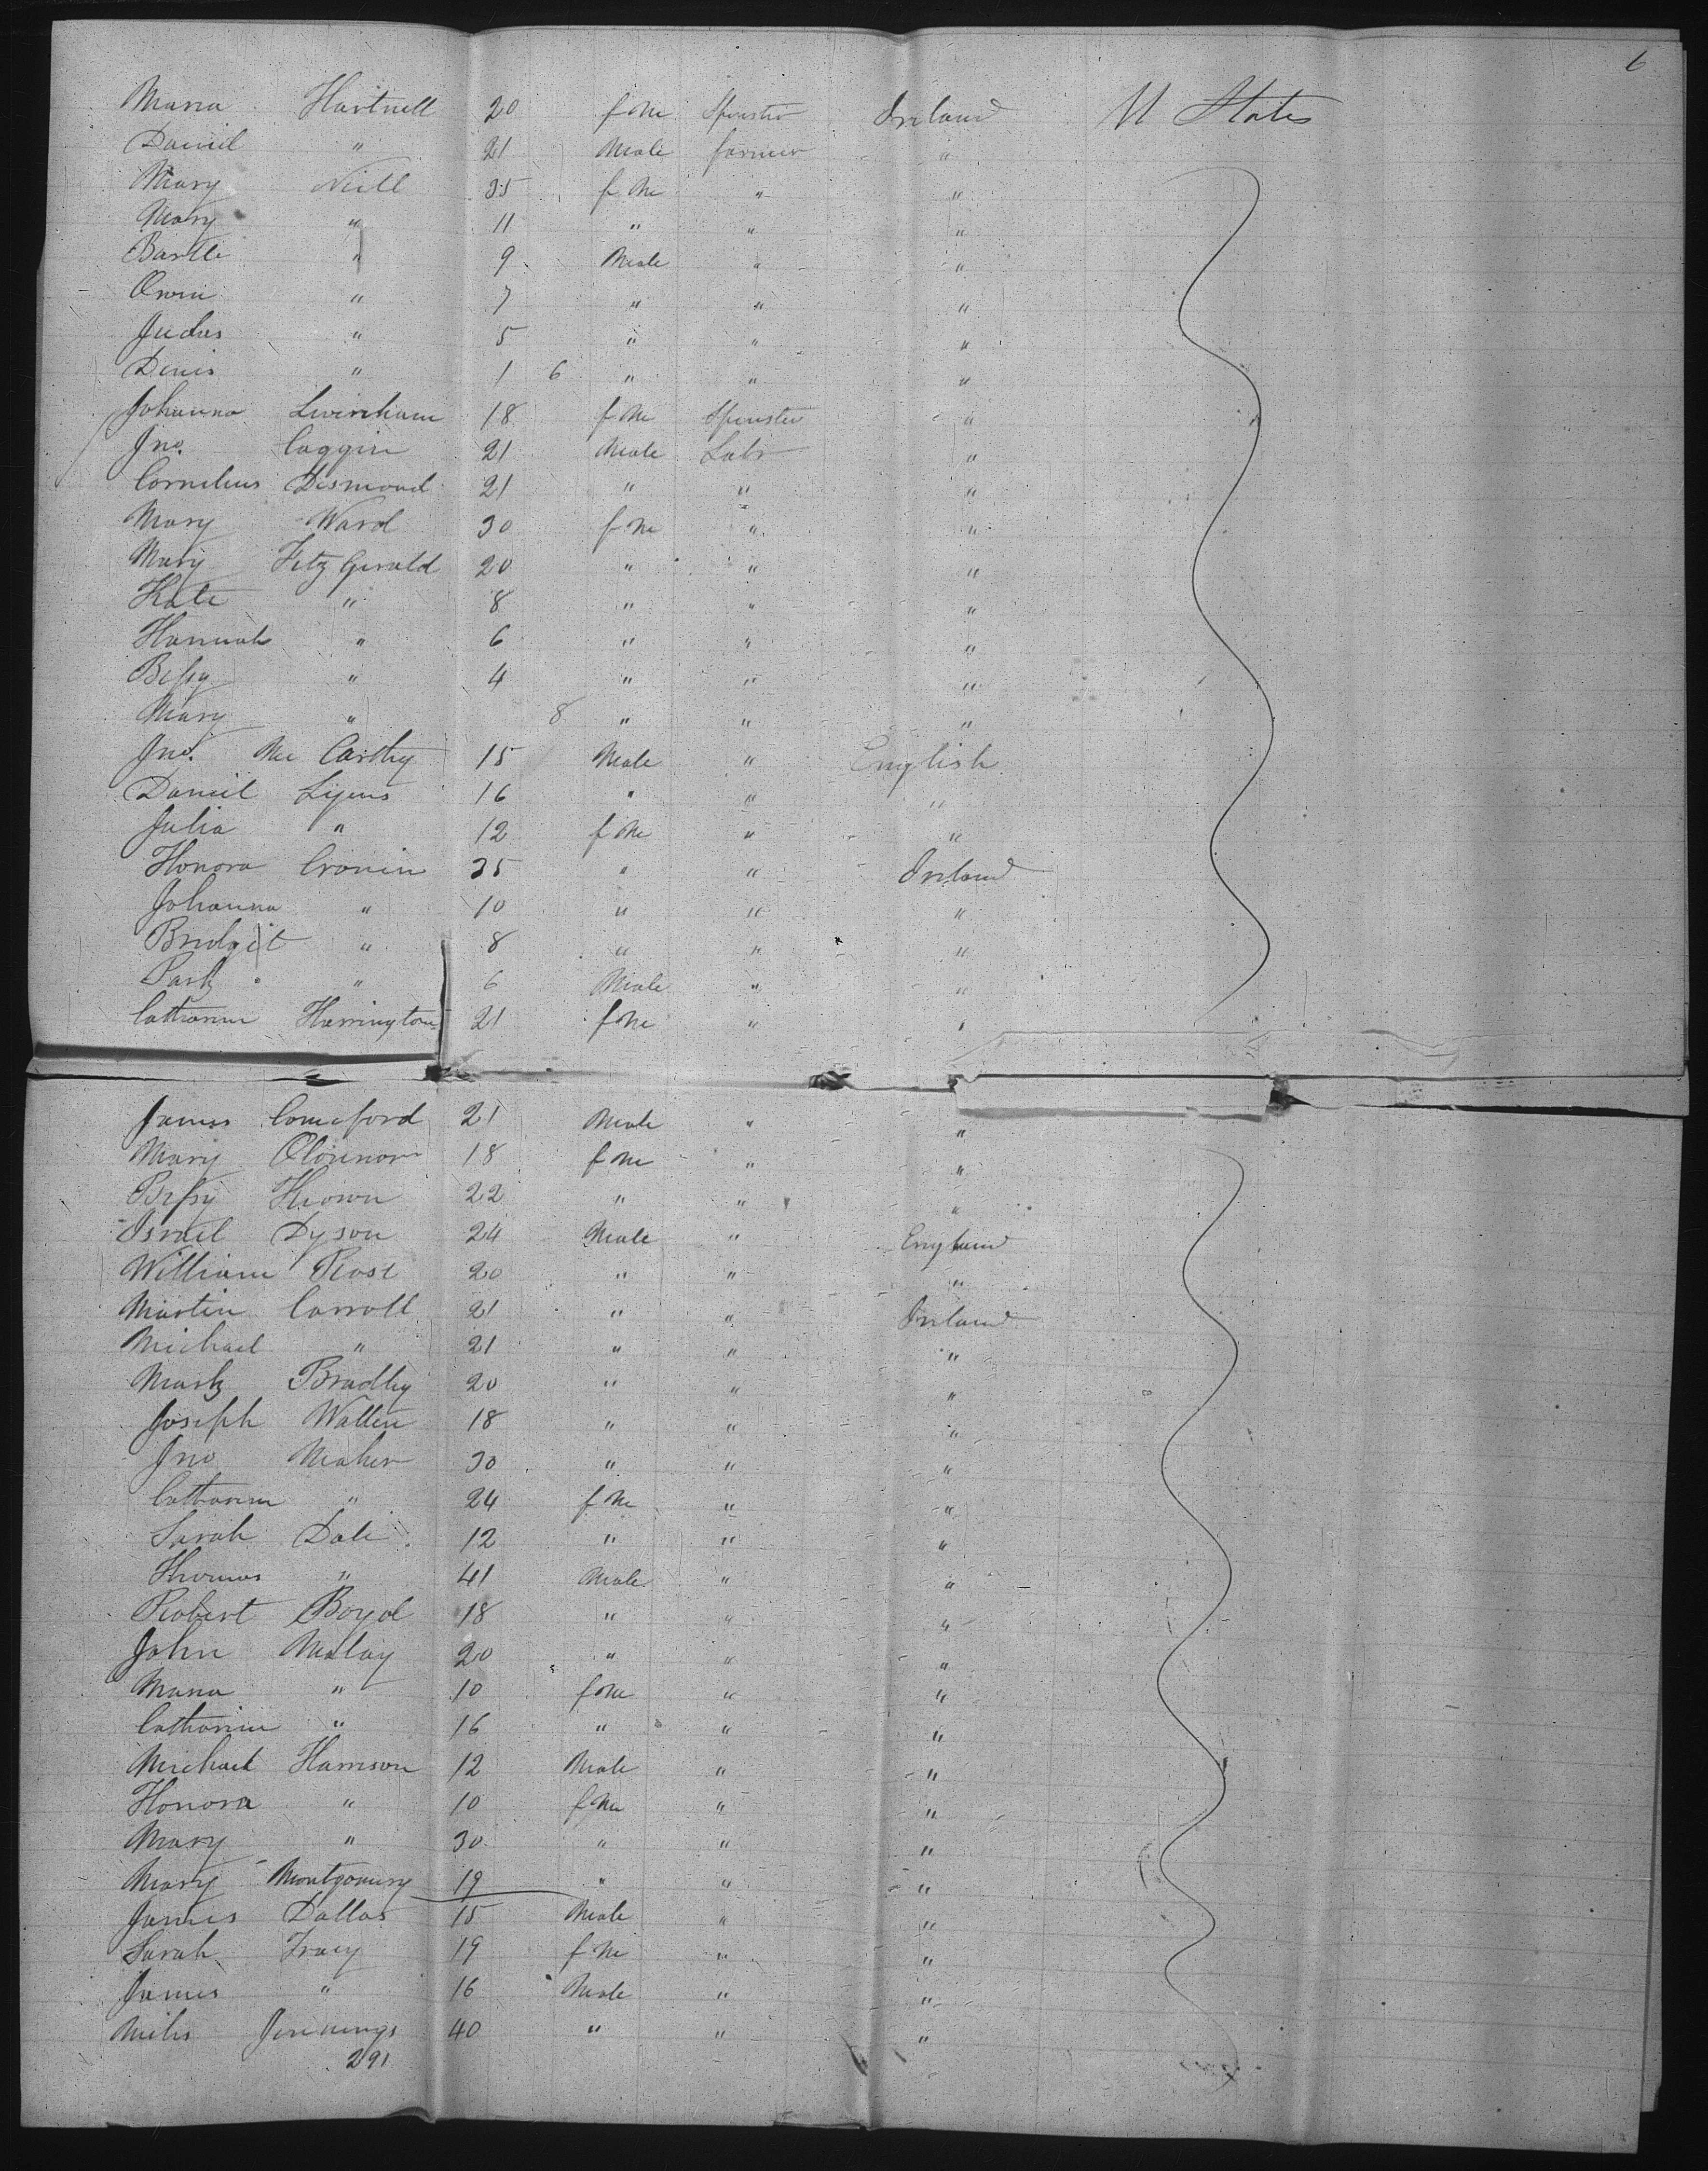 6
Maria Hartnell 20 f Me Spinster Ireland U States
Daniel " 21 Male farmer "
Mary Neill 35 f Me " "
Mary " 11 " " "
Bartle " 9 Male " "
Owen " 7 " " "
Judas " 5 " " "
Denis " 1 6 " " "
Johanna 18 f Me Spinster "
Jno. Coggin 21 Male Labr "
Cornelius Desmond 21 " " "
Mary Ward 30 f Me " "
Mary Fitz Gerald 20 " " "
Kate " 8 " " "
Hannah " 6 " " "
Bessy " 4 " " "
Mary " 8 " " "
Jno. Mc Carthy 15 Male " English
Daniel Lyens 16 " " "
Julia " 12 f Me " "
Honora Cronin 35 " " Ireland
Johanna " 10 " " "
Bridget " 8 " " "
Patk " 6 Male " "
Catharine Harrington 21 f Me " "
James Comeford 21 Male " "
Mary OConnor 18 f Me " "
Bessy Keown 22 " " "
Israel Dyson 24 Male " England
William Rose 20 " " "
Martin Carroll 21 " " Ireland
Michael " 21 " " "
Mark Bradley 20 " " "
Joseph Watten 18 " " "
Jno Maher 30 " " "
Catharine " 24 f Me " "
Sarah Dale 12 " " "
Thomas " 41 Male " "
Robert Boyd 18 " " "
John Malay 20 " " "
Maria " 10 f Me " "
Catharine " 16 " " "
Michael Harrison 12 Male " "
Honora " 10 f Me " "
Mary " 30 " " "
Mary Montgomery 19 " " "
James Dallas 15 Male " "
Sarah Tracy 19 f Me " "
James " 16 Male " "
Miles Jennings 40 " " "
291